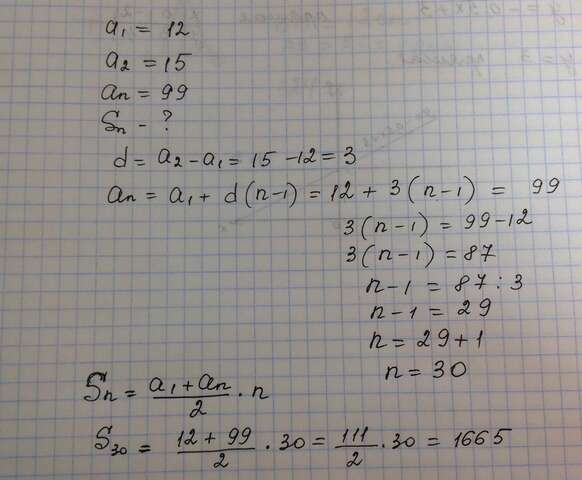 a₁ = 12
a₂ = 15
aₙ = 99
Sₙ - ?
d = a₂ - a₁ = 15 - 12 = 3
aₙ = a₁ + d(n-1) = 12 + 3(n-1) = 99
3(n-1) = 99-12
3(n-1) = 87
n-1 = 87 : 3
n-1 = 29
n = 29+1
n = 30
Sₙ = (a₁+aₙ)/2 · n
S₃₀ = (12+99)/2 · 30 = 111/2 · 30 = 1665